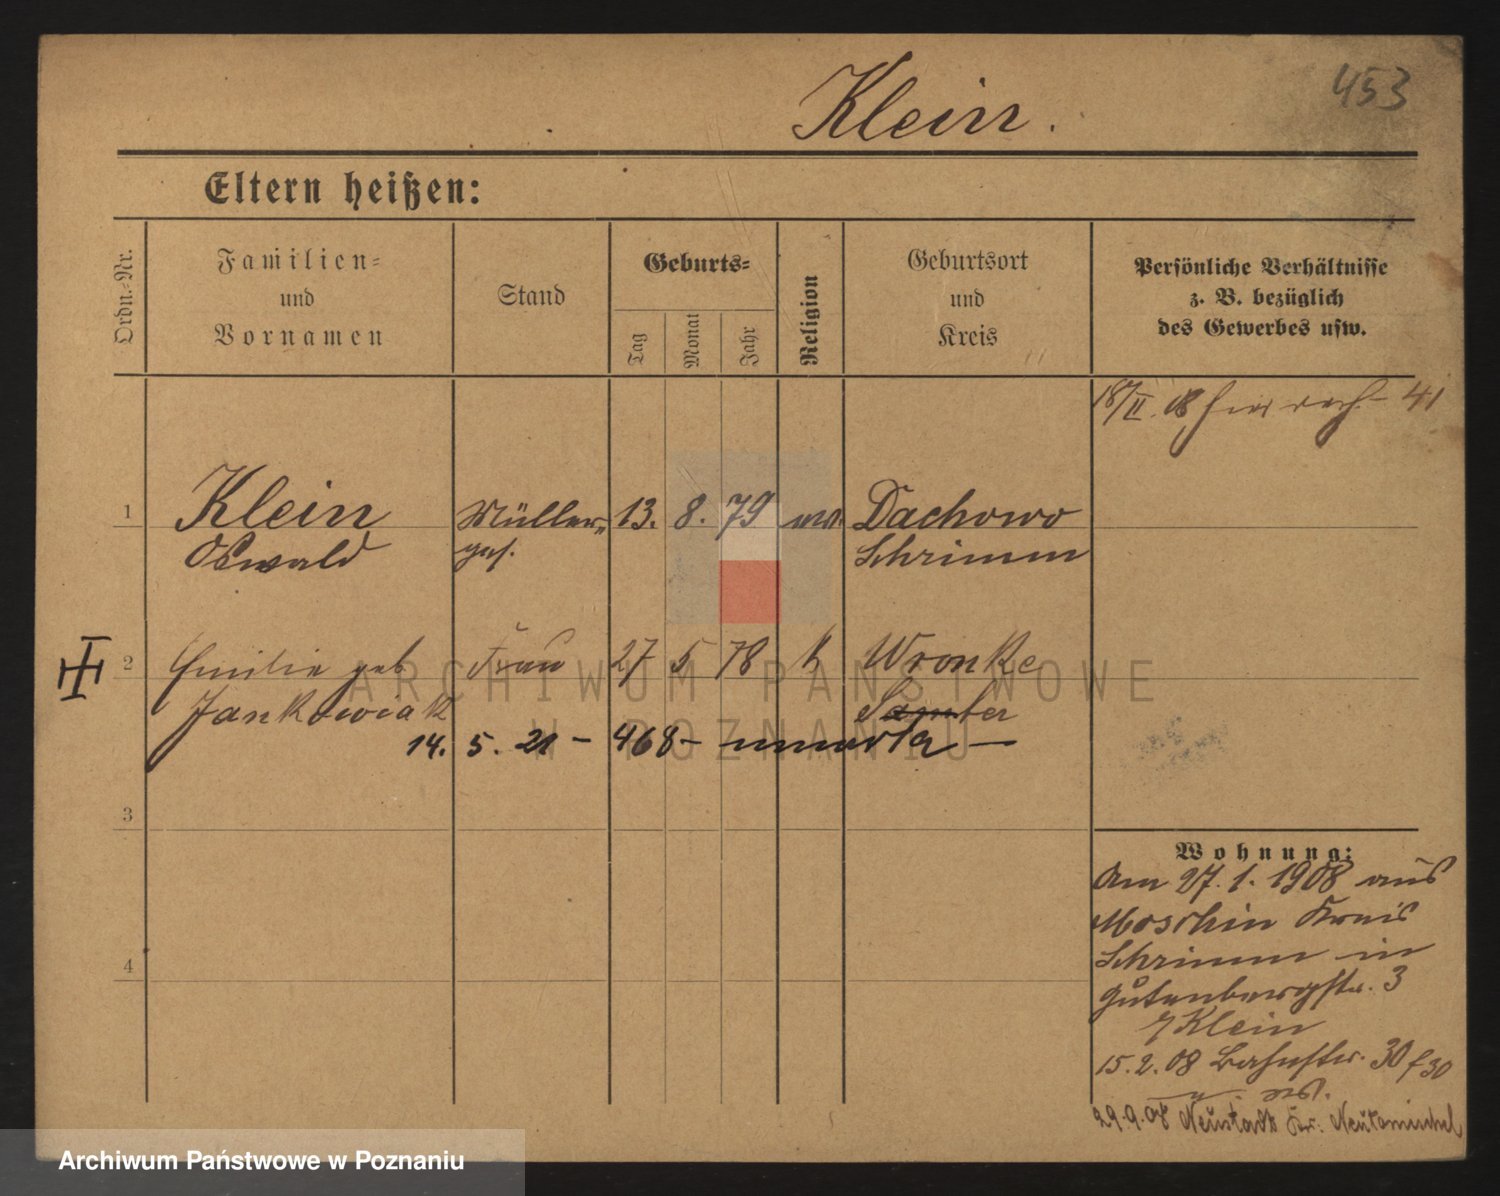 453
Klein.
Eltern heißen:
Ordn.-Nr.
Familien-
und
Vornamen
Stand
Geburts-
Tag
Monat
Jahr
Religion
Geburtsort
und
Kreis
Persönliche Verhältnisse
z. B. bezüglich
des Gewerbes usw.
18/II. 08 41
1 Klein Müller- 13. 8. 79 Dachowo
Oswald ges. Schrimm
2 Emilie geb Frau 27 5 78 k Wronke
Jankowiak Samter
14. 5. 21 - 468 - umarła -
3
4
Wohnung:
Am 27. 1. 1908 aus
Moschin Kreis
Schrimm in
Gutenbergstr. 3
Klein
15. 2. 08 Bahnstr. 30 f 30
29.9.08 Neustadt Kr. Neutomischel
ARCHIWUM PAŃSTWOWE
W POZNANIU
Archiwum Państwowe w Poznaniu